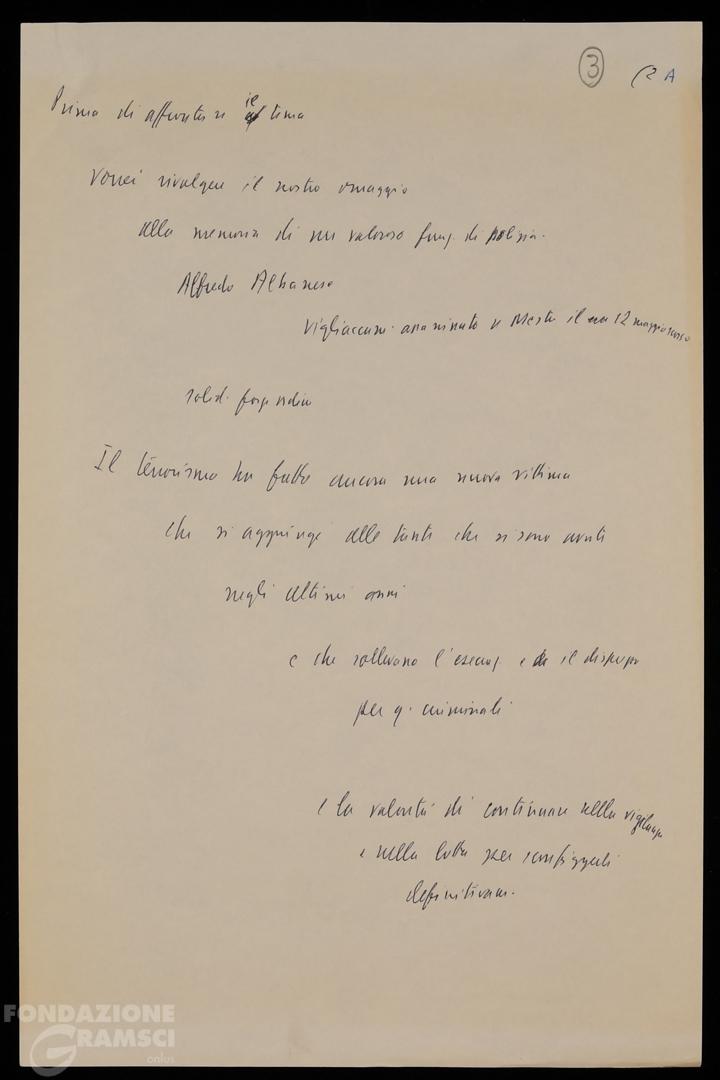 3 (2 A
Prima di affrontare il tema
Vorrei rivolgere il nostro omaggio
alla memoria di un valoroso funz. di polizia.
Alfredo Albanese
vigliaccam. assassinato a Mestre il 12 maggio scorso
solid. forze ordine
Il terrorismo ha fatto ancora una nuova vittima
che si aggiunge alle tante che si sono avute
negli ultimi anni
e che sollevano l'esecraz. e il disprezzo
per q. criminali
e la volontà di continuare nella vigilanza
e nella lotta per sconfiggerli
definitivam.
FONDAZIONE
GRAMSCI
onlus